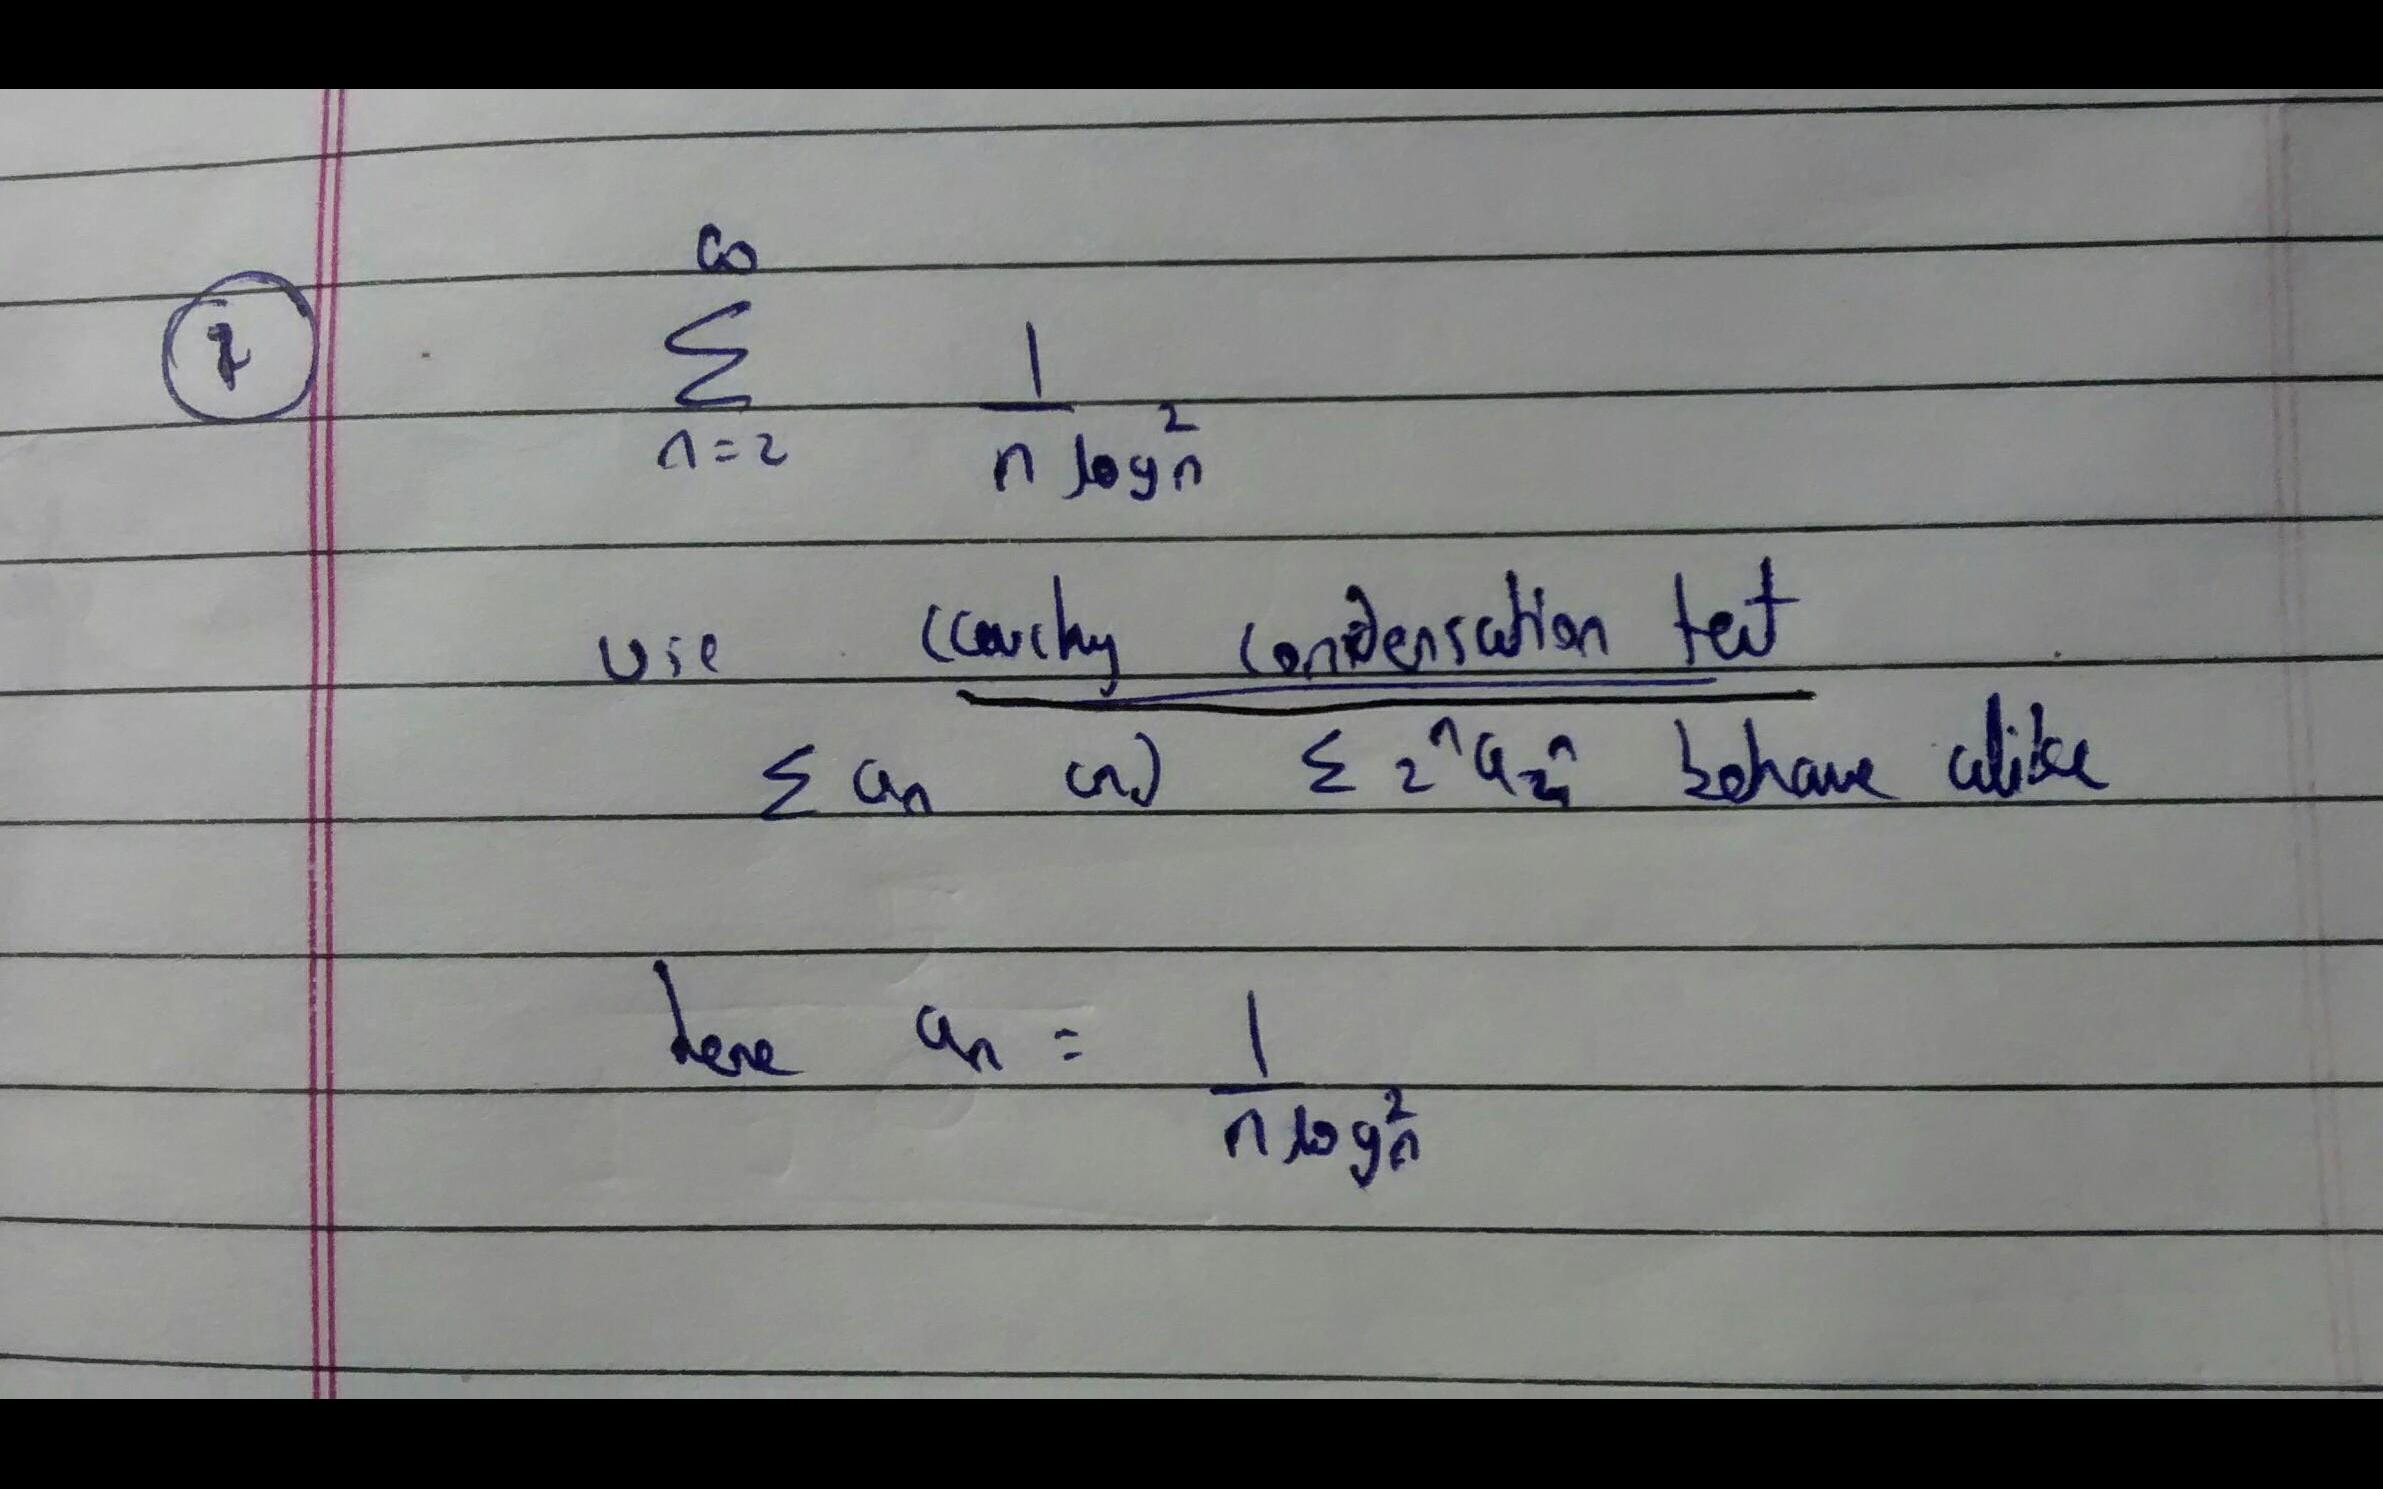 2
∞
Σ 1
n=2 n log²n
use Cauchy condensation test
Σ aₙ and Σ 2ⁿa₂ⁿ behave alike
here aₙ = 1
n log²n